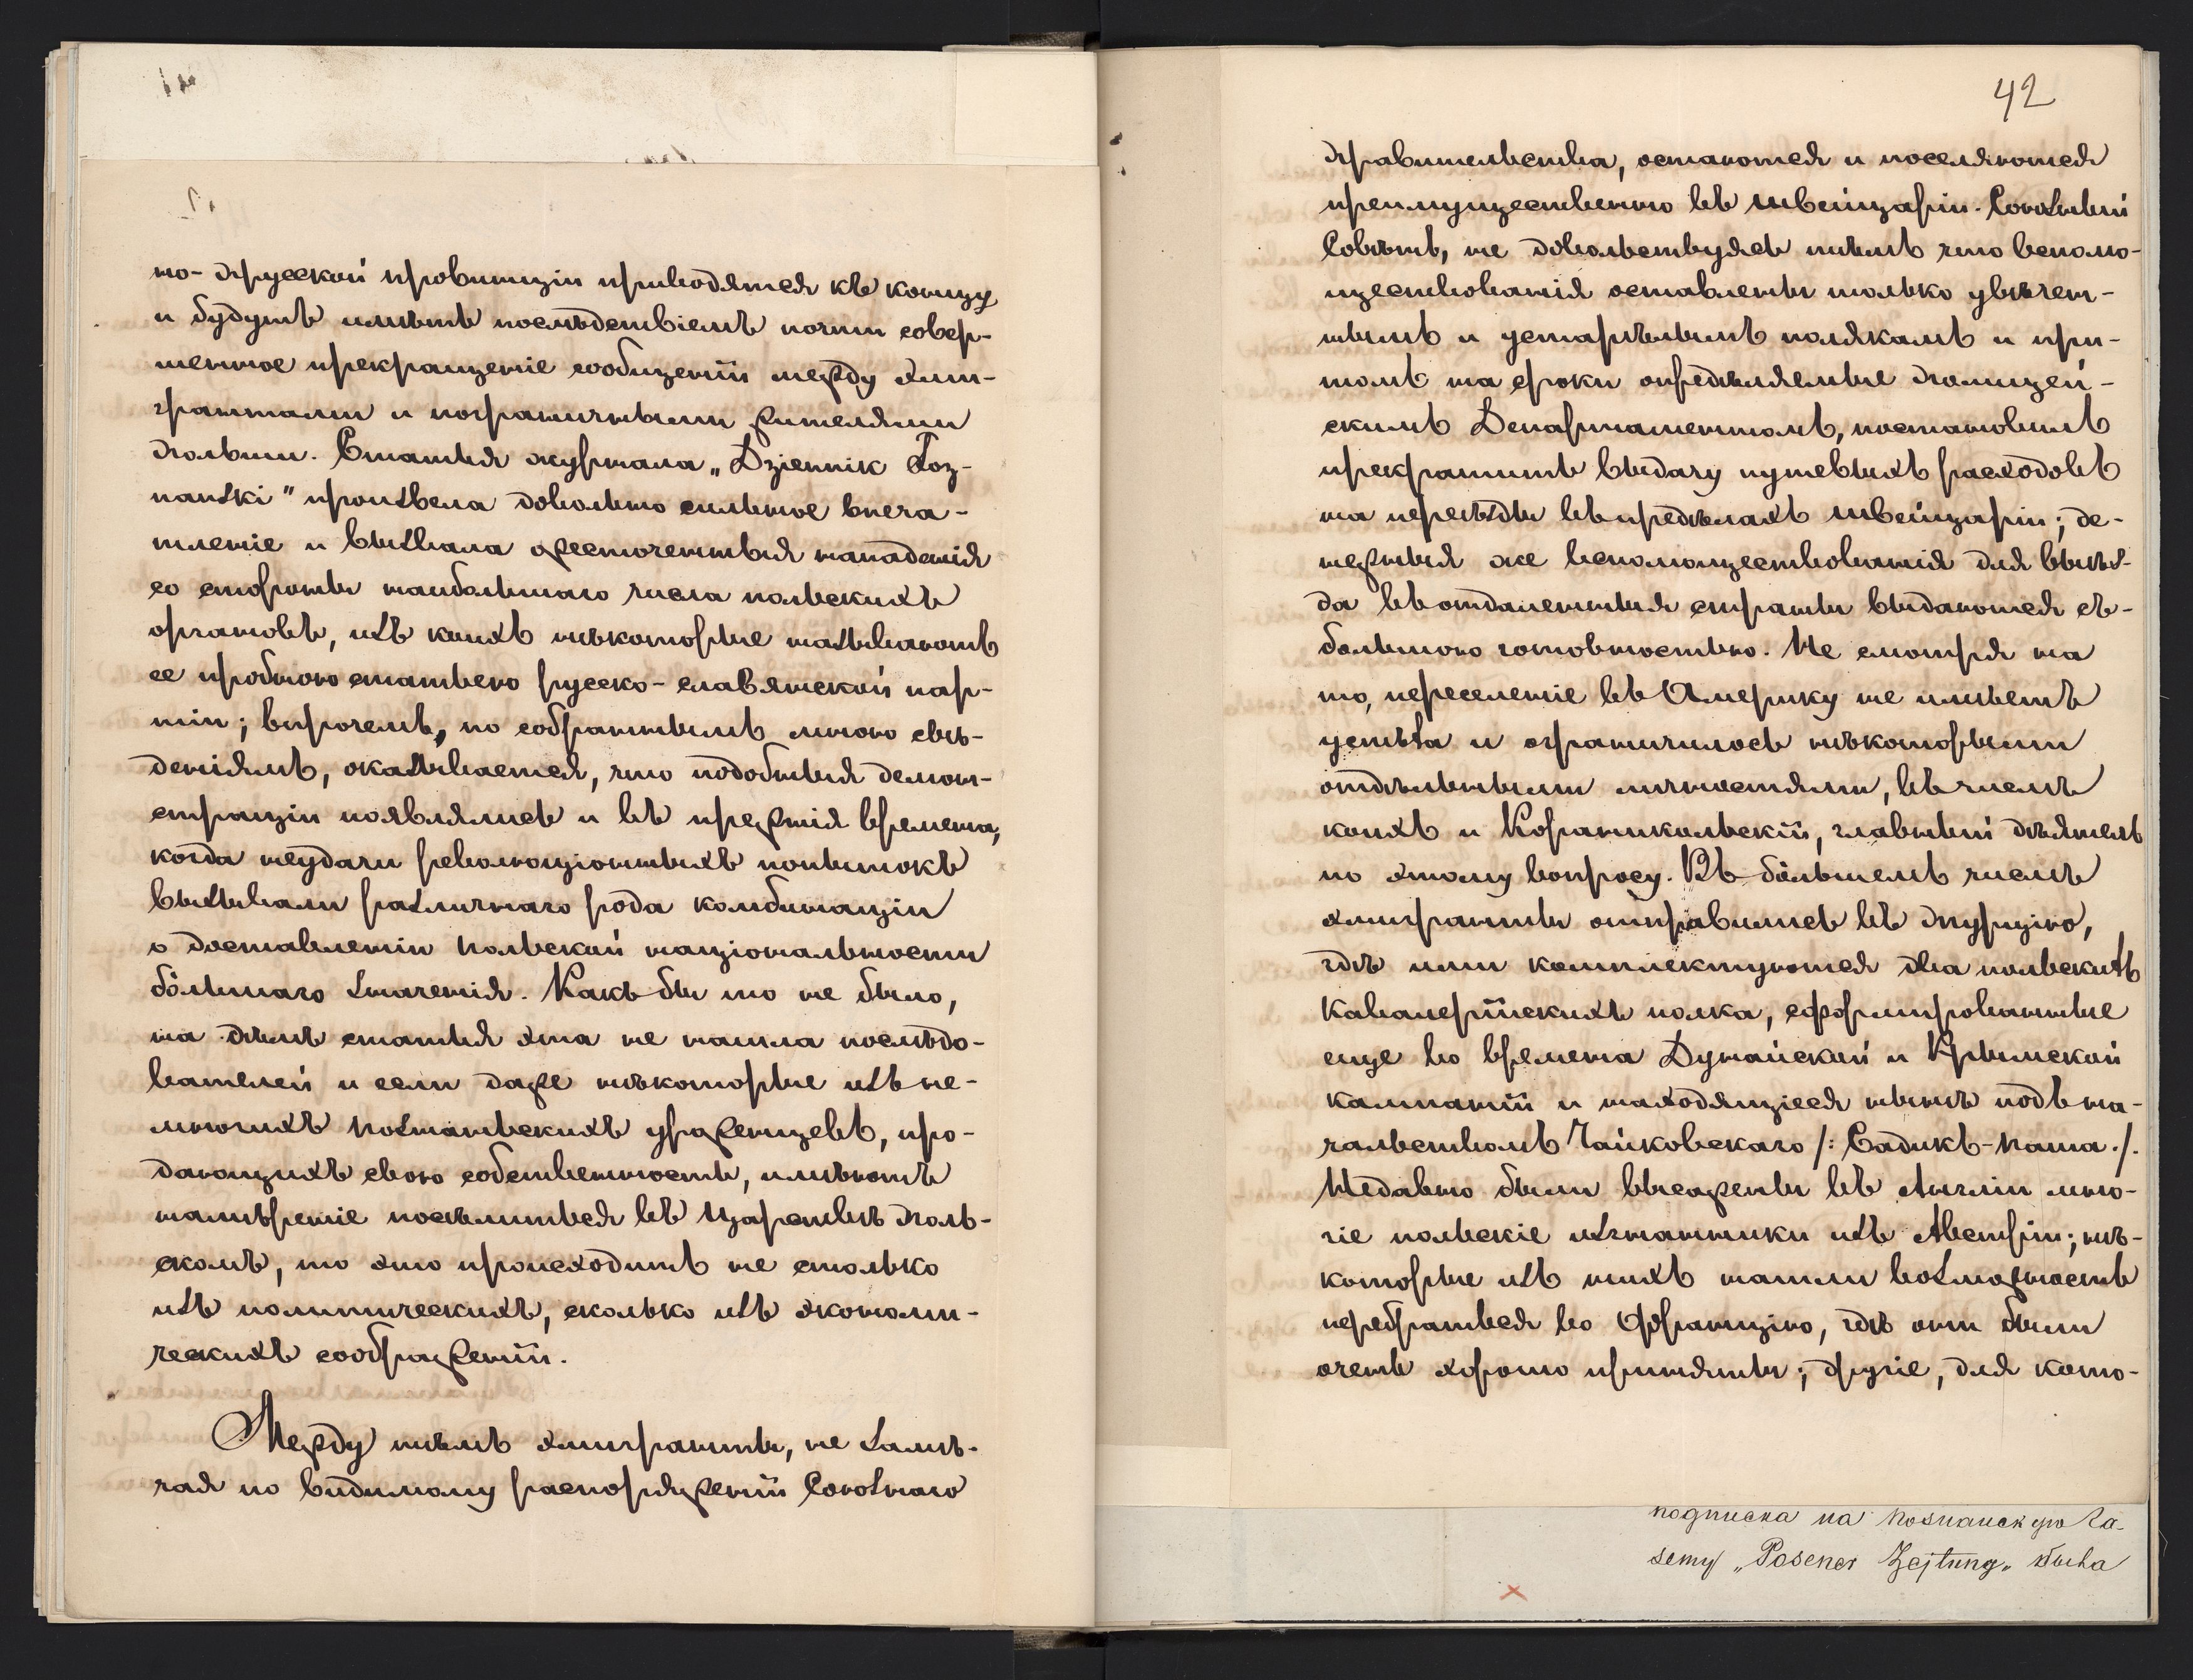 но-Прусской провинціи приводятся къ концу
и будутъ имѣть послѣдствіемъ почти совер-
шенное прекращеніе сообщеній между эми-
грантами и пограничными жителями
Польши. Статья журнала „Dziennik Poz-
nański" произвела довольно сильное впеча-
тленіе и вызвала ожесточенныя нападенія
со стороны наибольшаго числа польскихъ
органовъ, изъ коихъ нѣкоторые называютъ
ее пробною статьею русско-славянской пар-
тіи; впрочемъ, по собраннымъ мною свѣ-
деніямъ, оказывается, что подобныя демон-
страціи появлялись и въ прежнія времена,
когда неудачи революціонныхъ попытокъ
вызывали различнаго рода комбинаціи
о доставленіи польской національности
большаго значенія. Какъ бы то не было,
на дѣлѣ статья эта не нашла послѣдо-
вателей и если даже нѣкоторые изъ не-
многихъ Познанскихъ урожденцевъ, про-
дающихъ свою собственность, имѣютъ
намѣреніе поселиться въ Царствѣ Поль-
скомъ, то это происходитъ не столько
изъ политическихъ, сколько изъ экономи-
ческихъ соображеній.
Между тѣмъ эмигранты, не замѣ-
чая по видимому распоряженій Союзнаго
42
Правительства, остаются и поселяются
преимущественно въ Швейцаріи. Союзный
Совѣтъ, не довольствуясь тѣмъ что вспомо-
ществованія оставлены только увѣчен-
нымъ и устарѣлымъ полякамъ и при-
томъ на сроки опредѣляемые Полицей-
скимъ Департаментомъ, постановилъ
прекратить выдачу путевыхъ расходовъ
на переѣзды въ предѣлахъ Швейцаріи; де-
нежныя же вспомоществованія для выѣз-
да въ отдаленныя страны выдаются съ-
большою готовностью. Не смотря на
то, переселеніе въ Америку не имѣетъ
успѣха и ограничилось нѣкоторыми
отдѣльными личностями, въ числѣ
коихъ и Кораникольскій, главный дѣятель
по этому вопросу. Въ большемъ числѣ
эмигранты отправились въ Турцію,
гдѣ ими комплектуются два польскихъ
кавалерійскихъ полка, сформированные
еще во времена Дунайской и Крымской
кампаній и находящіеся нынѣ подъ на-
чальствомъ Чайковскаго /: Садикъ-паша :/.
Недавно были высажены въ Англіи мно-
гіе польскіе изгнанники изъ Австріи; нѣ-
которые изъ нихъ нашли возможность
перебраться во Францію, гдѣ они были
очень хорошо приняты; другіе, для кото-
подписка на Познанскую Га-
зету „Posener Zejtung„ была